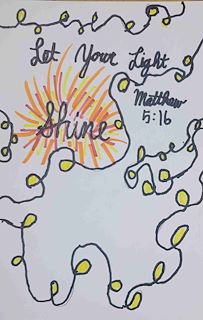 Let Your Light
Shine
Matthew
5:16